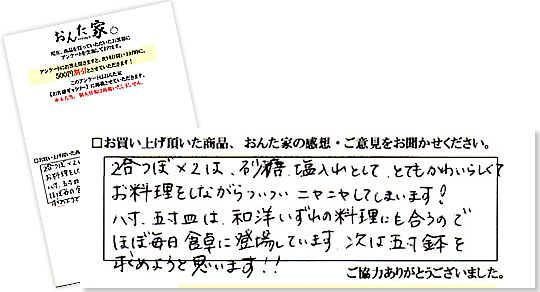 おんた家。
アンケートを実施しております。
500円割引とさせていただきます!
このアンケートはおんた家
□お買い上げ頂いた商品、おんた家の感想・ご意見をお聞かせください。
2合つぼ×2は、砂糖、塩入れとして、とてもかわいらしくて
お料理をしながらついついニヤニヤしてしまいます!
八寸、五寸皿は、和洋いずれの料理にも合うので
ほぼ毎日食卓に登場しています。次は五寸鉢を
求めようと思います!!
ご協力ありがとうございました。